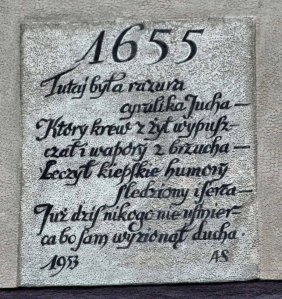 1655
Tutaj była razura
cyrulika Jucha—
Który krew z żył wypusz-
czał i wapory z brzucha—
Leczył kiepskie humory
śledziony i serca—
Już dziś nikogo nie uśmier-
ca bo sam wyzionął ducha.
1953 AS